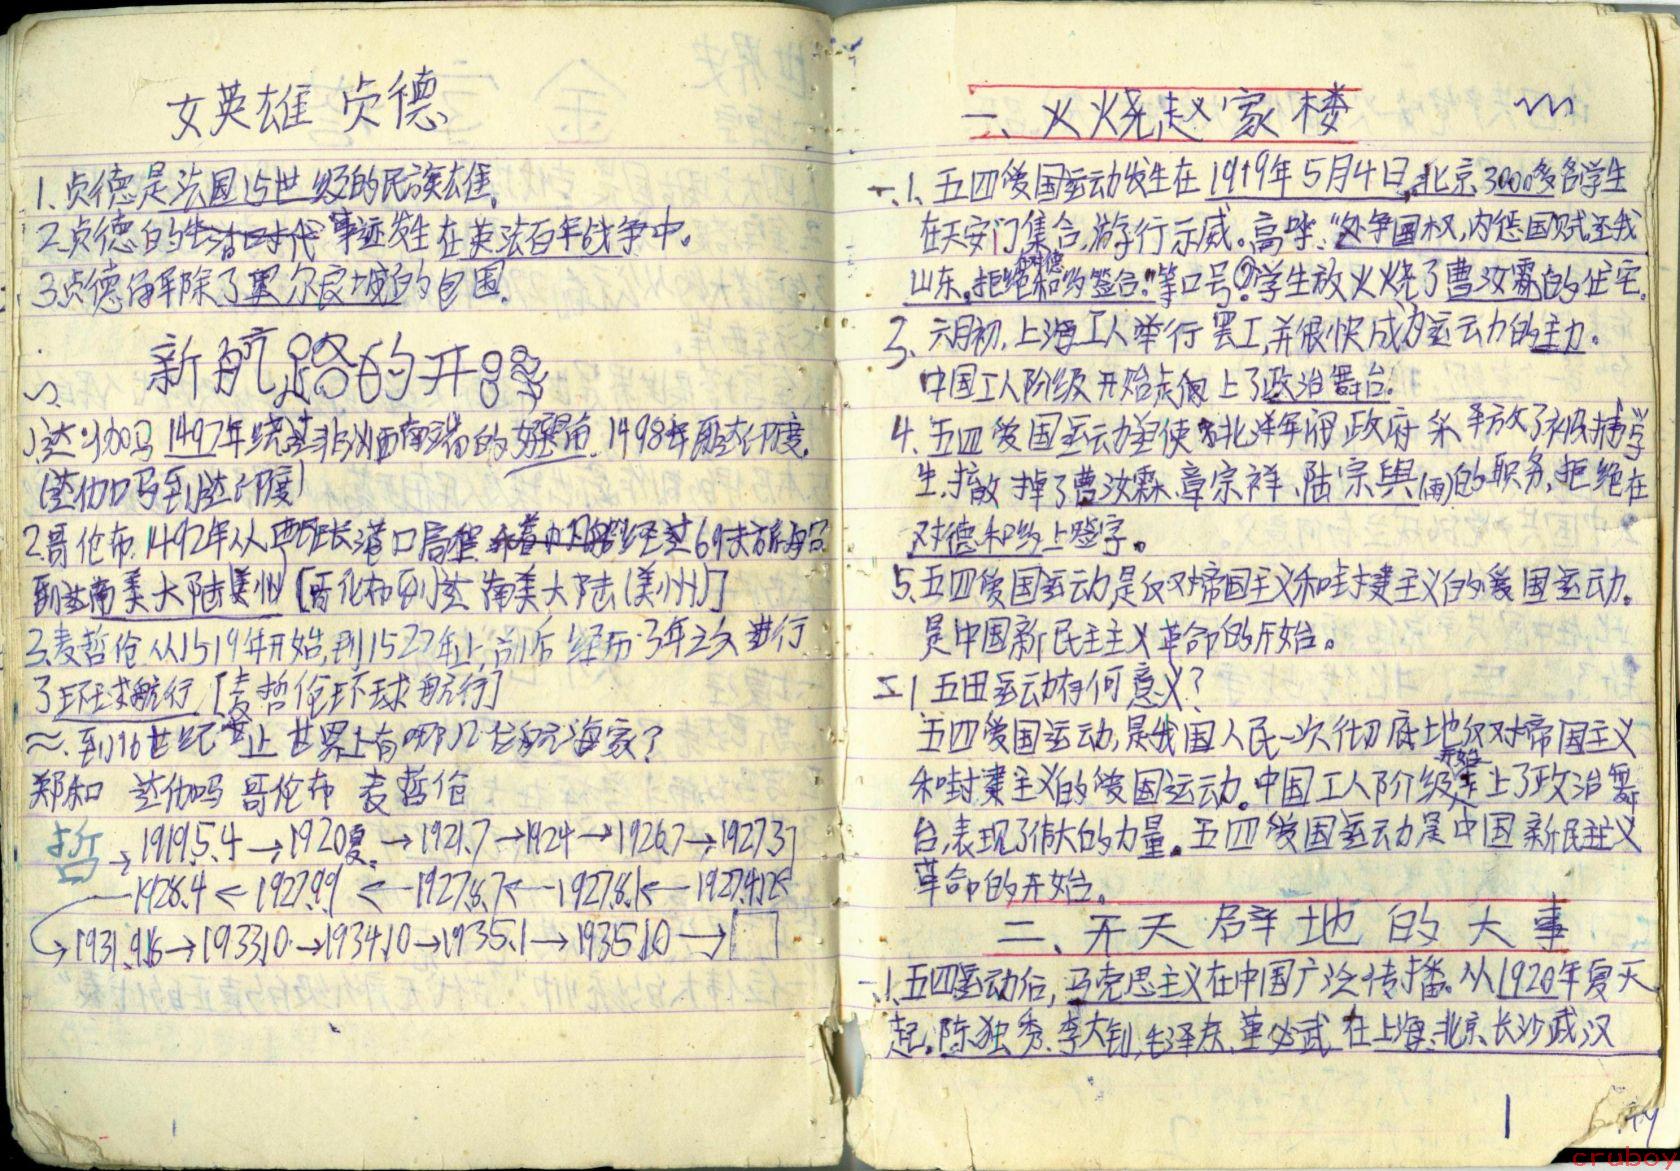 女英雄 贞德
1.贞德是法国15世纪的民族英雄。
2.贞德的生活时代事迹发生在英法百年战争中。
3.贞德解除了奥尔良城的包围。
新航路的开辟
1.达·伽马 1497年绕过非洲西南端的好望角。1498年到达印度。
(达伽马到达印度)
2.哥伦布 1492年从西班牙港口启程 经过69天
到达南美大陆美州 [哥伦布到达 南美大陆(美州)]
3.麦哲伦从1519年开始,到1522年止,前后 经历 3年之久 进行
了环球航行 [麦哲伦环球航行]
二.到16世纪 止 世界上有哪几位航海家?
郑和 达伽吗 哥伦布 麦哲伦
哲 → 1919.5.4 → 1920夏. → 1921.7 → 1924 → 1926.7 → 1927.3
1928.4 ← 1927.9.9 ← 1927.8.7 ← 1927.8.1 ← 1927.4.12
→ 1931.9.18 → 1933.10 → 1934.10 → 1935.1 → 1935.10 →
一、火烧赵家楼
一.1.五四爱国运动发生在1919年5月4日,北京3000多名学生
在天安门集合,游行示威。高呼:"外争国权,内惩国贼,还我
山东。拒绝和约签合."等口号②学生放火烧了曹汝霖的住宅。
3.六月初,上海工人举行 罢工,并很快成为运动力的主力。
中国工人阶级 开始走 上了政治舞台。
4.五四爱国运动 使 北洋军阀政府 释放了被捕学
生, 掉了曹汝霖、章宗祥、陆宗舆(俩)的职务,拒绝在
对德和约上签字。
5.五四爱国运动是反对帝国主义和封建主义的爱国运动。
是中国新民主主义革命的开始。
二1 五四运动有何意义?
五四爱国运动,是我国人民一次彻底地反对帝国主义
和封建主义的爱国运动。中国工人阶级开始走上了政治舞
台,表现了伟大的力量。五四爱国运动是中国新民主义
革命的开始。
二、开天辟地的大事
一.1.五四运动后,马克思主义在中国广泛传播。从1920年夏天
起。陈独秀、李大钊,毛泽东、董必武 在上海、北京、长沙武汉
1
cruboy